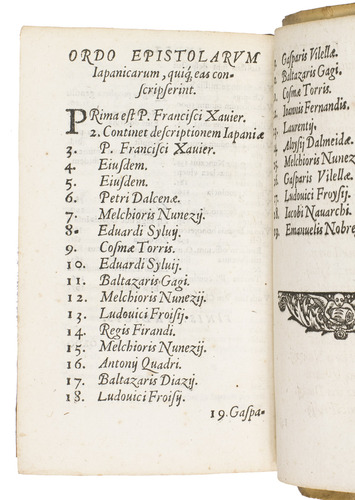 ORDO EPISTOLARVM
Iapanicarum, quiq́, eas con-
scripserint.
PRima est P. Francisci Xauier.
2. Continet descriptionem Iapaniæ
3. P. Francisci Xauier.
4. Eiusdem.
5. Eiusdem.
6. Petri Dalcenæ.
7. Melchioris Nunezij.
8. Eduardi Syluij.
9. Cosmæ Torris.
10. Eduardi Syluij.
11. Baltazaris Gagi.
12. Melchioris Nunezij.
13. Ludouici Froisij.
14. Regis Firandi.
15. Melchioris Nunezij.
16. Antonij Quadri.
17. Baltazaris Diazij.
18. Ludouici Froisij.
19. Gaspa-
Gasparis Vilellæ.
Baltazaris Gagi.
Cosmæ Torris.
Ioannis Fernandis.
Laurentij.
Aloysij Dalmeidæ
Melchioris Nunez
Gasparis Vilellæ
Ludouici Froysij
Iacobi Nauarchi
Emanuelis Nobre